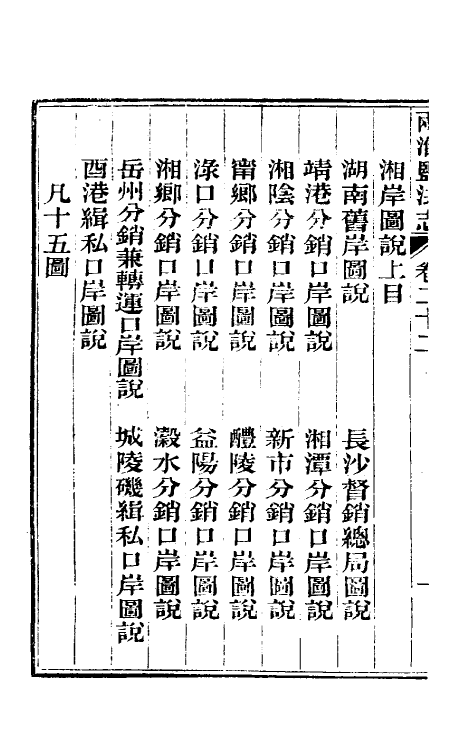 兩淮鹽法志 卷二十二
湘岸圖說上目
湖南舊岸圖說 長沙督銷總局圖說
靖港分銷口岸圖說 湘潭分銷口岸圖說
湘陰分銷口岸圖說 新市分銷口岸圖說
甯鄉分銷口岸圖說 醴陵分銷口岸圖說
淥口分銷口岸圖說 益陽分銷口岸圖說
湘鄉分銷口岸圖說 瀔水分銷口岸圖說
岳州分銷兼轉運口岸圖說 城陵磯緝私口岸圖說
酉港緝私口岸圖說
凡十五圖